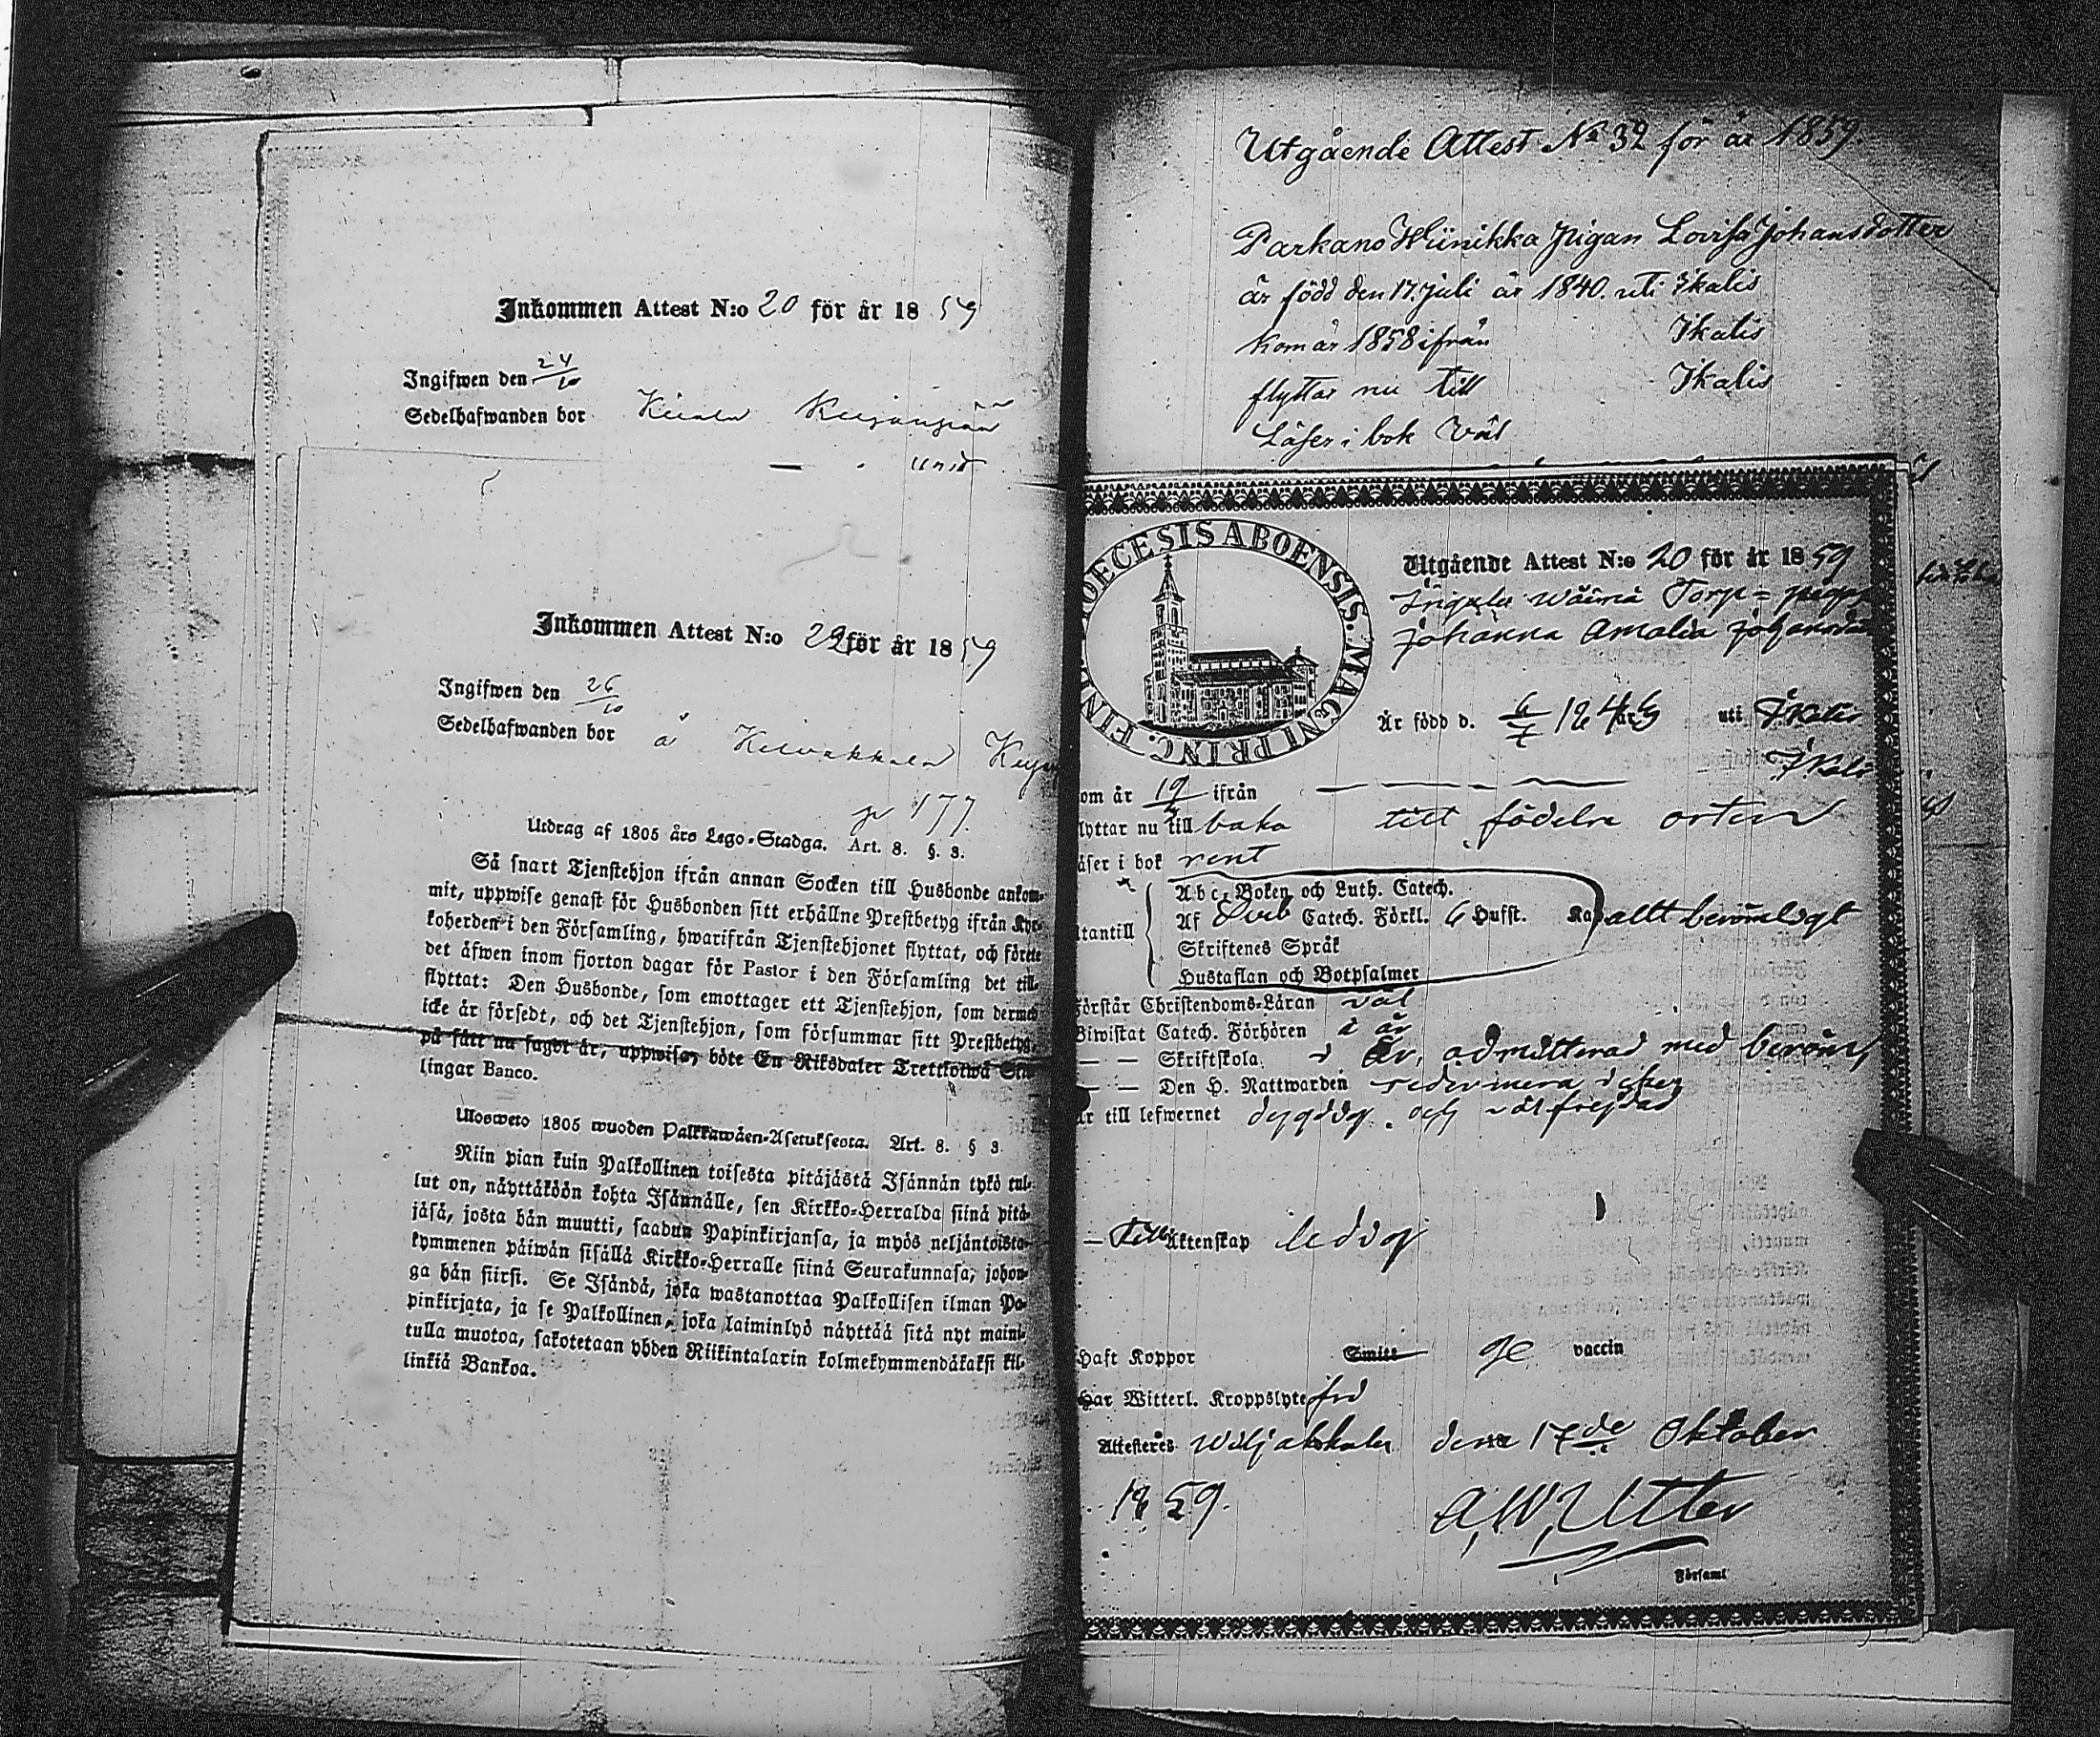 Inkommen Attest N:o 20 för år 1859
Ingifwen den 24/10
Sedelhafwanden bor
Inkommen Attest N:o 29 för år 1859
Ingifwen den 26/10
Sedelhafwanden bor å
p 177.
Utdrag af 1805 års Lego-Stadga. Art. 8. §. 3.
Så snart Tjenstehjon ifrån annan Socken till Husbonde ankom-
mit, uppwise genast för Husbonden sitt erhållne Prestbetyg ifrån Kyr-
koherden i den Församling, hwarifrån Tjenstehjonet flyttat, och förete
det äfwen inom fjorton dagar för Pastor i den Församling det till-
flyttat: Den Husbonde, som emottager ett Tjenstehjon, som dermed
icke är försedt, och det Tjenstehjon, som försummar sitt Prestbetyg,
på sätt nu sagdt är, uppwisa, böte En Riksdaler Trettiotwå Skil-
lingar Banco.
Ulosweto 1805 wuoden Palkkawäen-Asetuksesta. Art. 8. § 3
Niin pian kuin Palkollinen toisesta pitäjästä Isännän tykö tul-
lut on, näyttäköön kohta Isännälle, sen Kirkko-Herralda siinä pitä-
jäsä, josta hän muutti, saadun Papinkirjansa, ja myös neljäntoista-
kymmenen päiwän sisällä Kirkko-Herralle siinä Seurakunnasa, johon-
ga hän siirsi. Se Isändä, joka wastanottaa Palkollisen ilman Pa-
pinkirjata, ja se Palkollinen, joka laiminlyö näyttää sitä nyt maini-
tulla muotoa, sakotetaan yhden Riikintalarin kolmekymmendäkaksi kil-
linkiä Bankoa.
Utgående Attest No 32 för år 1859.
Parkano Hiinikka Pigan Lovisa Johansdotter
är född den 17. Juli år 1840. uti Ikalis
Kom år 1858 ifrån Ikalis
flyttar nu till Ikalis
Läser i bok väl
DIOECESIS ABOENSIS. MAGNI PRINC. FINL
Utgående Attest N:o 20 för år 1859
Torp= pigan
Johanna Amalia Johansdotter
Är född d. uti Ikalis
Ikalis
om år 19 ifrån
lyttar nu till baka till födelse orten
äser i bok rent
tantill
Abc-Boken och Luth. Catech.
Af Catech. Förkl. 6 Hufst. allt berömligt
Skriftenes Språk
Hustaflan och Botpsalmer
Förstår Christendoms-Läran väl
Biwistat Catech. Förhören i år
— — Skriftskola. i år, admitterad med beröm,
— — Den H. Nattwarden
Är till lefwernet dygdig och väl frejdad
— Till Äktenskap ledig
Haft Koppor Smitt ge vaccin
Har Witterl. Kroppslyte fri
Attesteres Wiljakkala den 17de Oktober
1859.
A, W, Utter
Församl